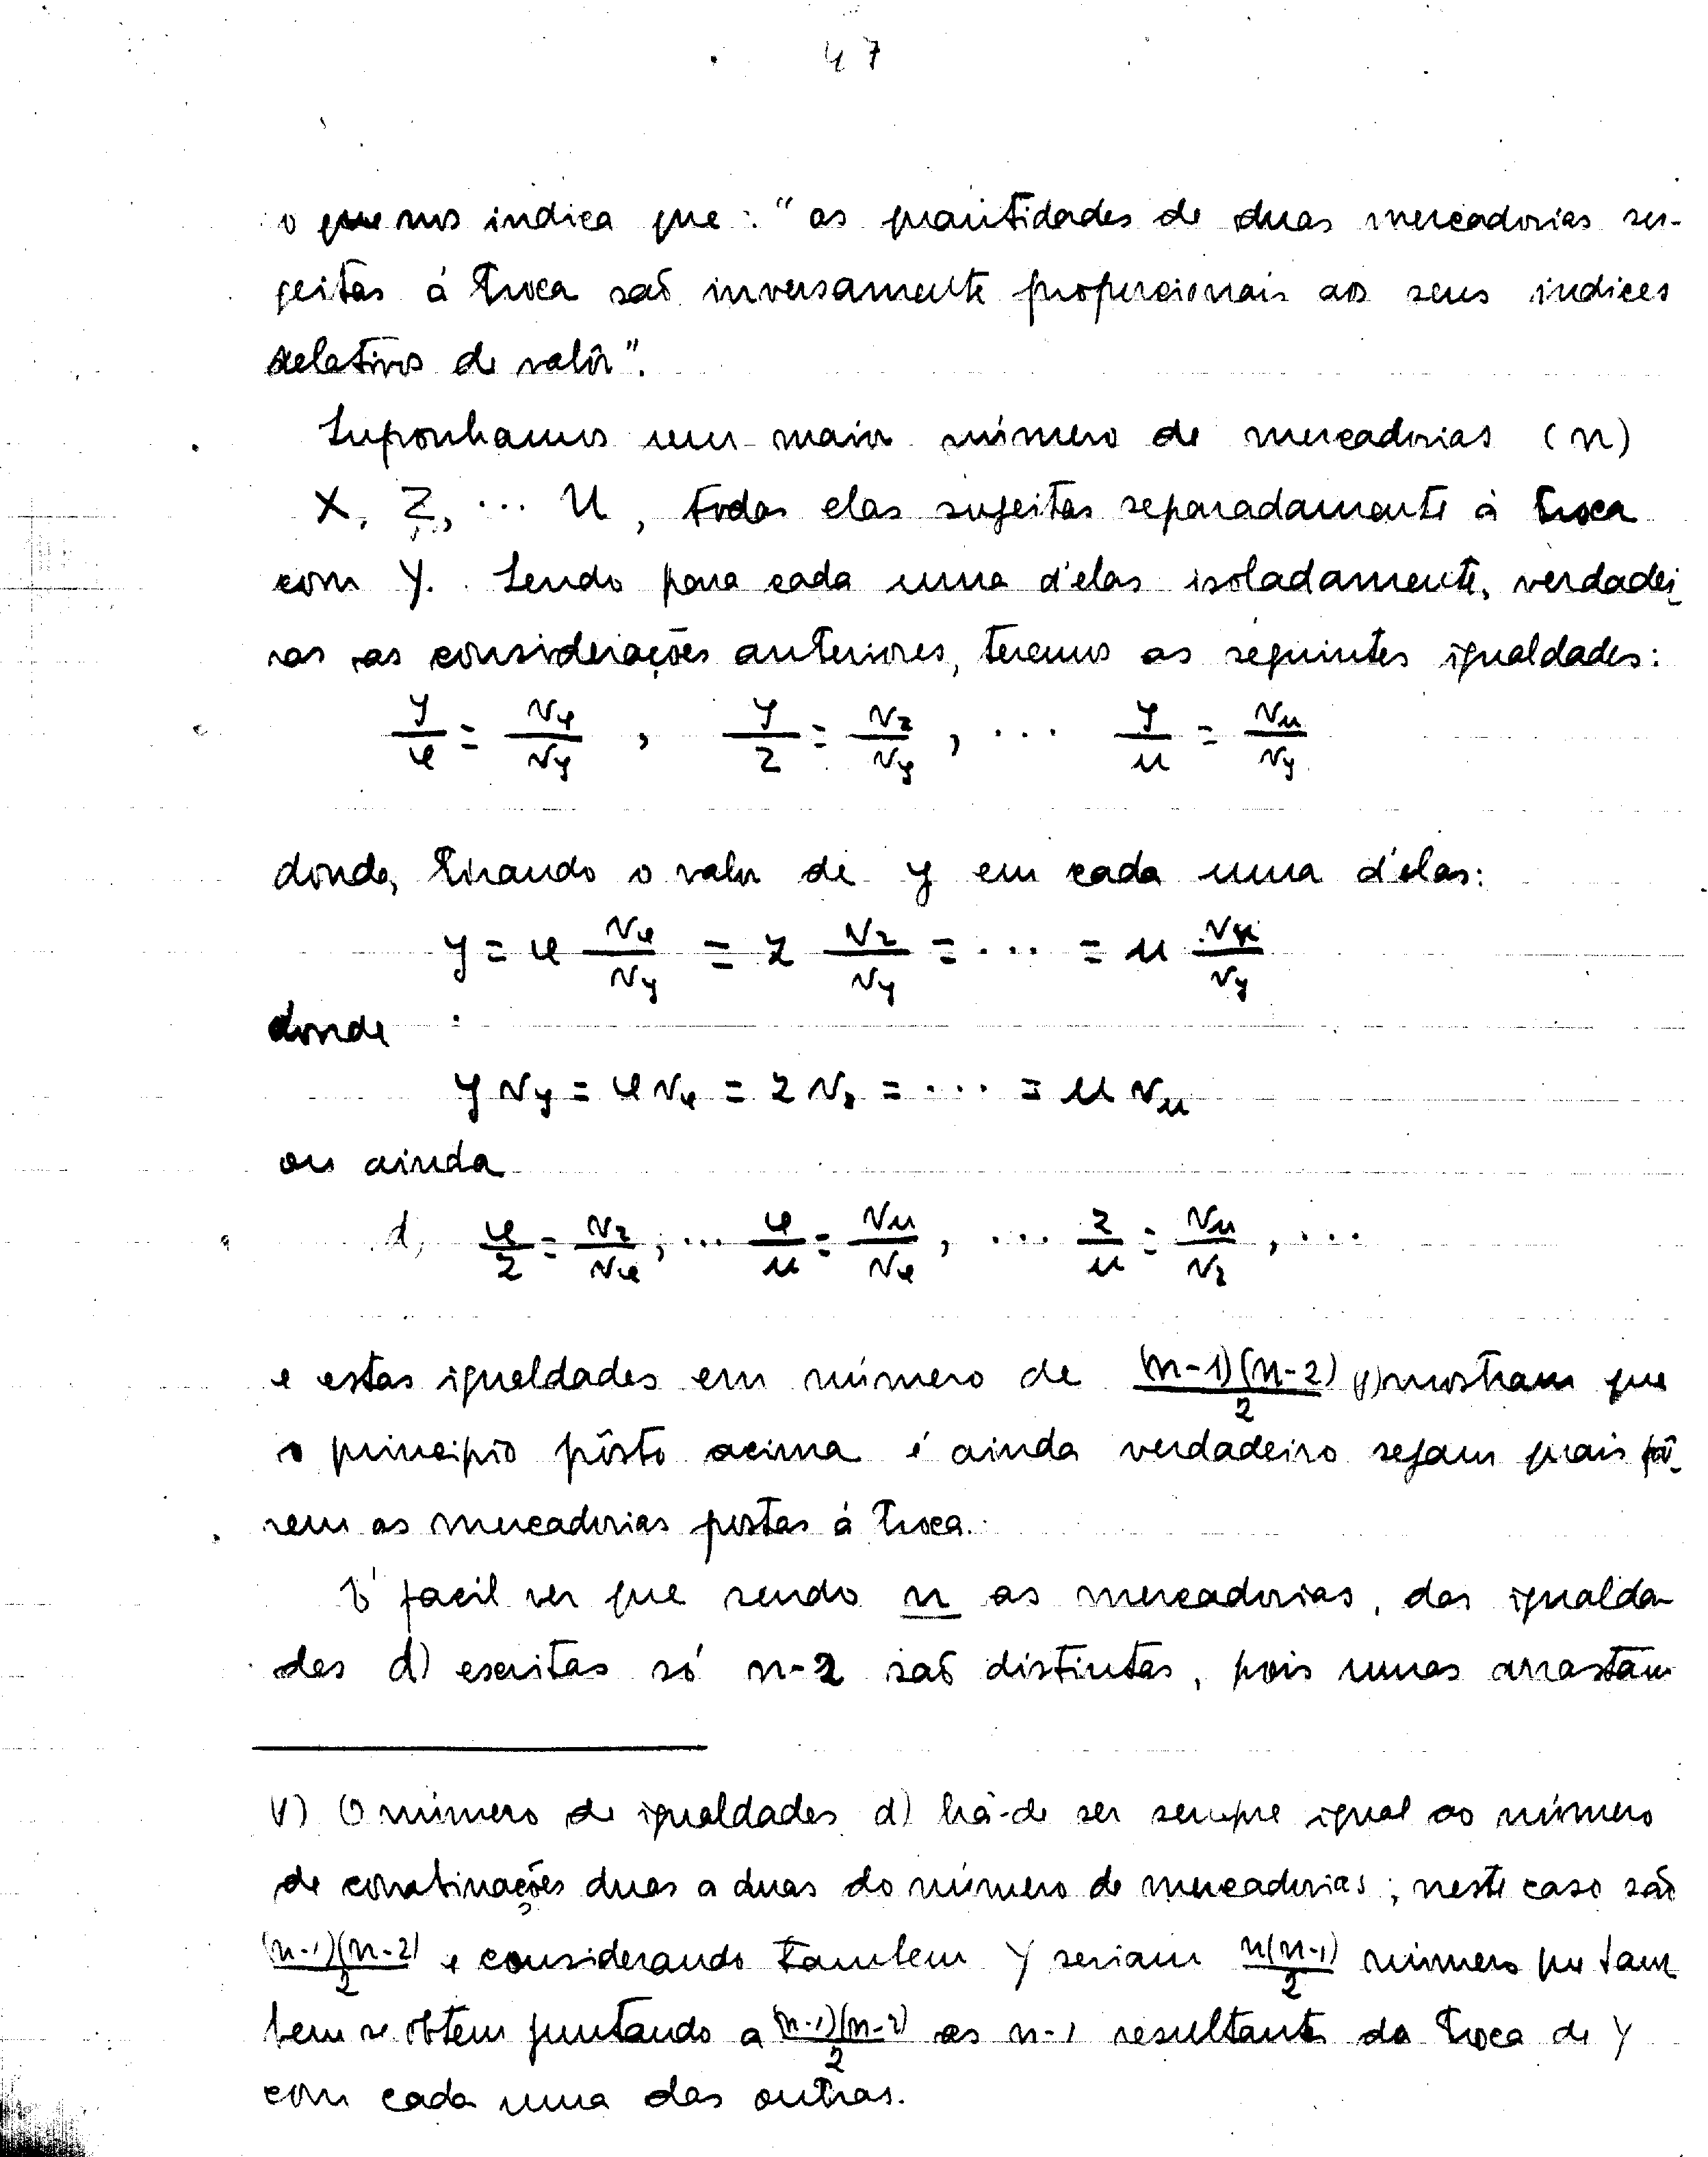 47
o que nos indica que: "as quantidades de duas mercadorias su-
jeitas á troca saõ inversamente proporcionais aos seus indices
relativos de valôr".
Suponhamos um maior número de mercadorias (n)
X, Z, ... U, todas elas sujeitas separadamente á troca
com Y. Sendo para cada uma d'elas isoladamente, verdadei-
ras as considerações anteriores, teremos as seguintes igualdades:
y/x = Vx/Vy , y/z = Vz/Vy , ... y/u = Vu/Vy
donde, tirando o valor de y em cada uma d'elas:
y = x Vx/Vy = z Vz/Vy = ... = u Vu/Vy
donde
y Vy = x Vx = z Vz = ... = u Vu
ou ainda
d) x/z = Vz/Vx , ... x/u = Vu/Vx , ... z/u = Vu/Vz , ...
e estas igualdades em número de (n-1)(n-2)/2 (1) mostram que
o principio pôsto acima é ainda verdadeiro sejam quais fô-
rem as mercadorias postas á troca.
É facil ver que sendo n as mercadorias, das igualda-
des d) escritas só n-2 saõ distintas, pois umas arrastam
1) O número de igualdades d) há-de ser sempre igual ao número
de combinações duas a duas do número de mercadorias; neste caso são
(n-1)(n-2)/2 e considerando tambem Y seriam n(n-1)/2 número que tam
bem se obtem juntando a (n-1)(n-2)/2 as n-1 resultantes da troca de Y
com cada uma das outras.